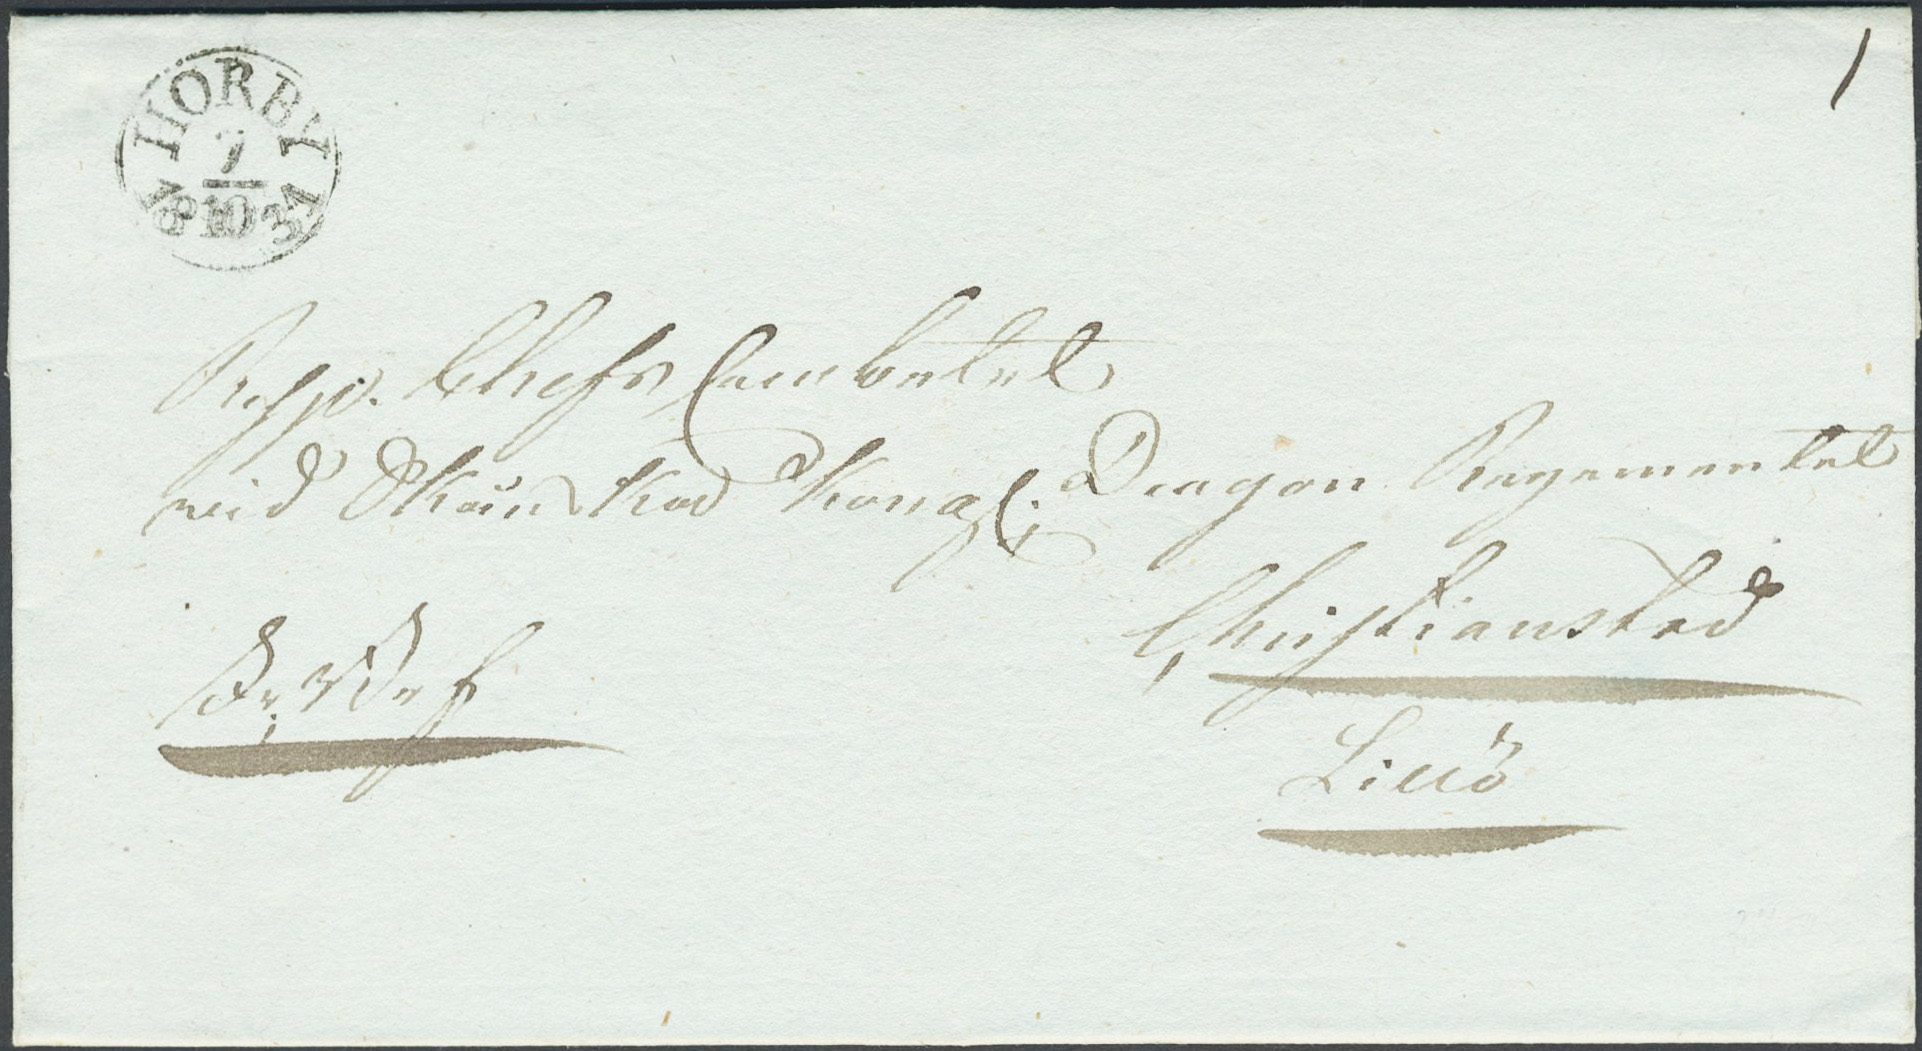 HÖRBY
7
10
1831
1
Resp. Chefs Embetet
vid Skånska Kongl: Dragon Regementet
Christianstad
Lillö